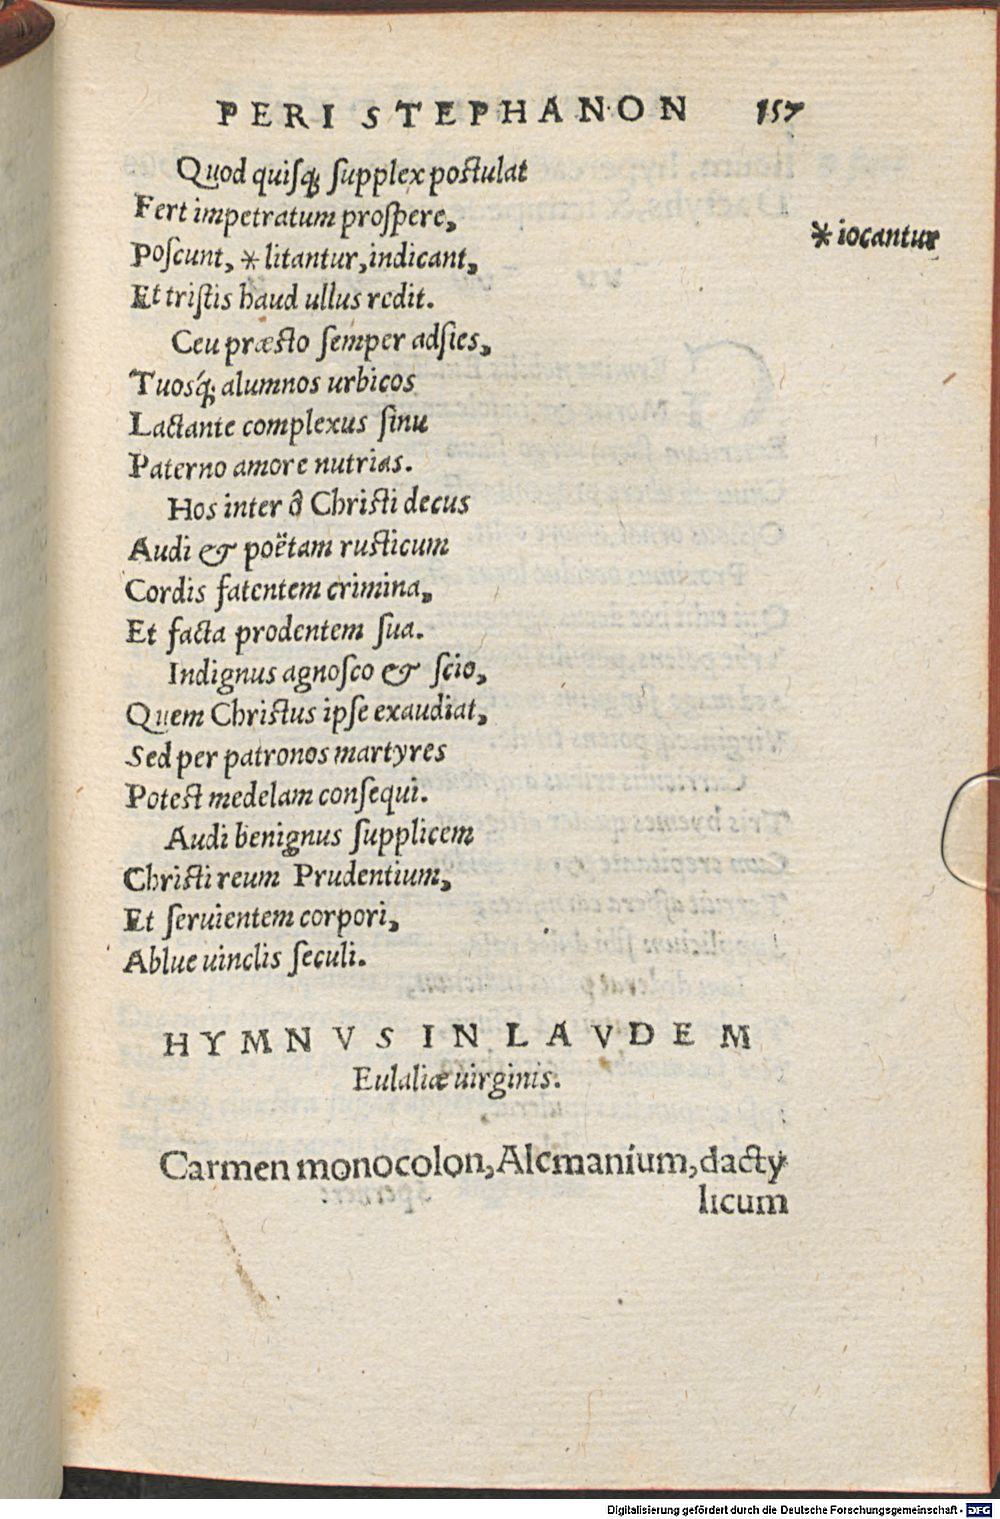 PERI STEPHANON 157
Quod quiſq; ſupplex poſtulat
Fert impetratum proſpere,
Poſcunt, * litantur, indicant,
* iocantur
Et triſtis haud ullus redit.
Ceu præſto ſemper adſies,
Tuosq́; alumnos urbicos
Lactante complexus ſinu
Paterno amore nutrias.
Hos inter ô Chriſti decus
Audi & poëtam ruſticum
Cordis fatentem crimina,
Et facta prodentem ſua.
Indignus agnoſco & ſcio,
Quem Chriſtus ipſe exaudiat,
Sed per patronos martyres
Poteſt medelam conſequi.
Audi benignus ſupplicem
Chriſti reum Prudentium,
Et ſeruientem corpori,
Ablue uinclis ſeculi.
HYMNVS IN LAVDEM
Eulaliæ uirginis.
Carmen monocolon, Alcmanium, dacty
licum
Digitalisierung gefördert durch die Deutsche Forschungsgemeinschaft - DFG